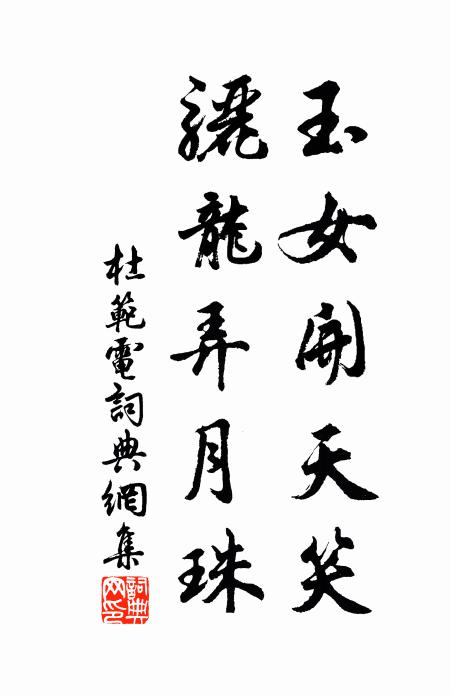 玉女開天笑
驪龍弄月珠
杜範電詞典網集
詞典網印